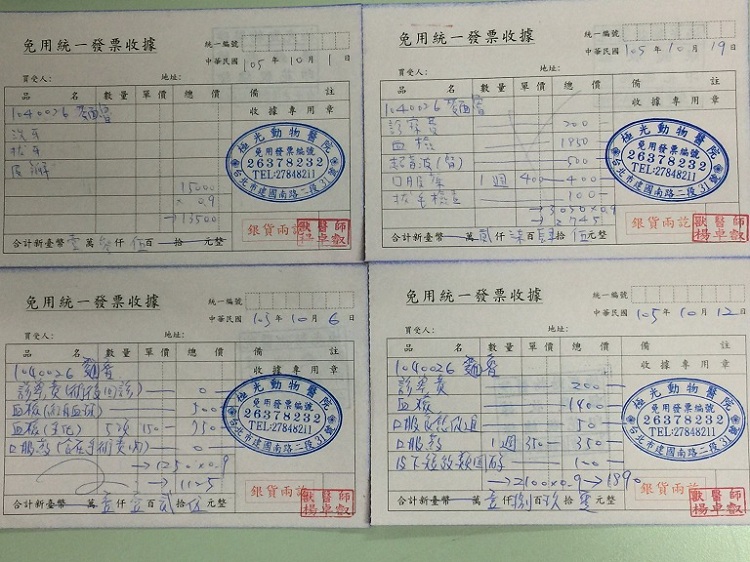 免用統一發票收據
統一編號
中華民國105年10月1日
買受人: 地址:
品名 數量 單價 總價 備註
收據專用章
1040026
洗牙
拔牙
15000
× 0.9
→13500
極光動物醫院
免用發票編號
26378232
TEL:27848211
台北市建國南路二段31號
銀貨兩訖
獸醫師
楊卓叡
合計新臺幣 壹萬 參仟 伍百 拾 元整
免用統一發票收據
統一編號
中華民國105年10月19日
買受人: 地址:
品名 數量 單價 總價 備註
收據專用章
1040026
診察費 200
血檢 1850
超音波 500
口服藥 1週 400 400
100
→3050×0.9
→2745
極光動物醫院
免用發票編號
26378232
TEL:27848211
台北市建國南路二段31號
銀貨兩訖
獸醫師
楊卓叡
合計新臺幣 萬 貳仟 柒百 肆拾 伍元整
免用統一發票收據
統一編號
中華民國105年10月6日
買受人: 地址:
品名 數量 單價 總價 備註
收據專用章
1040026
診察費(術後回診) 0
血檢 500
血檢(生化) 5項 150 750
口服藥(含在手術費內) 0
→1250×0.9
→1125
極光動物醫院
免用發票編號
26378232
TEL:27848211
台北市建國南路二段31號
銀貨兩訖
獸醫師
楊卓叡
合計新臺幣 萬 壹仟 壹百 貳拾 伍元整
免用統一發票收據
統一編號
中華民國105年10月12日
買受人: 地址:
品名 數量 單價 總價 備註
收據專用章
1040026
診察費 200
血檢 1400
50
口服藥 1週 350 350
100
→2100×0.9→1890
極光動物醫院
免用發票編號
26378232
TEL:27848211
台北市建國南路二段31號
銀貨兩訖
獸醫師
楊卓叡
合計新臺幣 萬 壹仟 捌百 玖拾 零元整